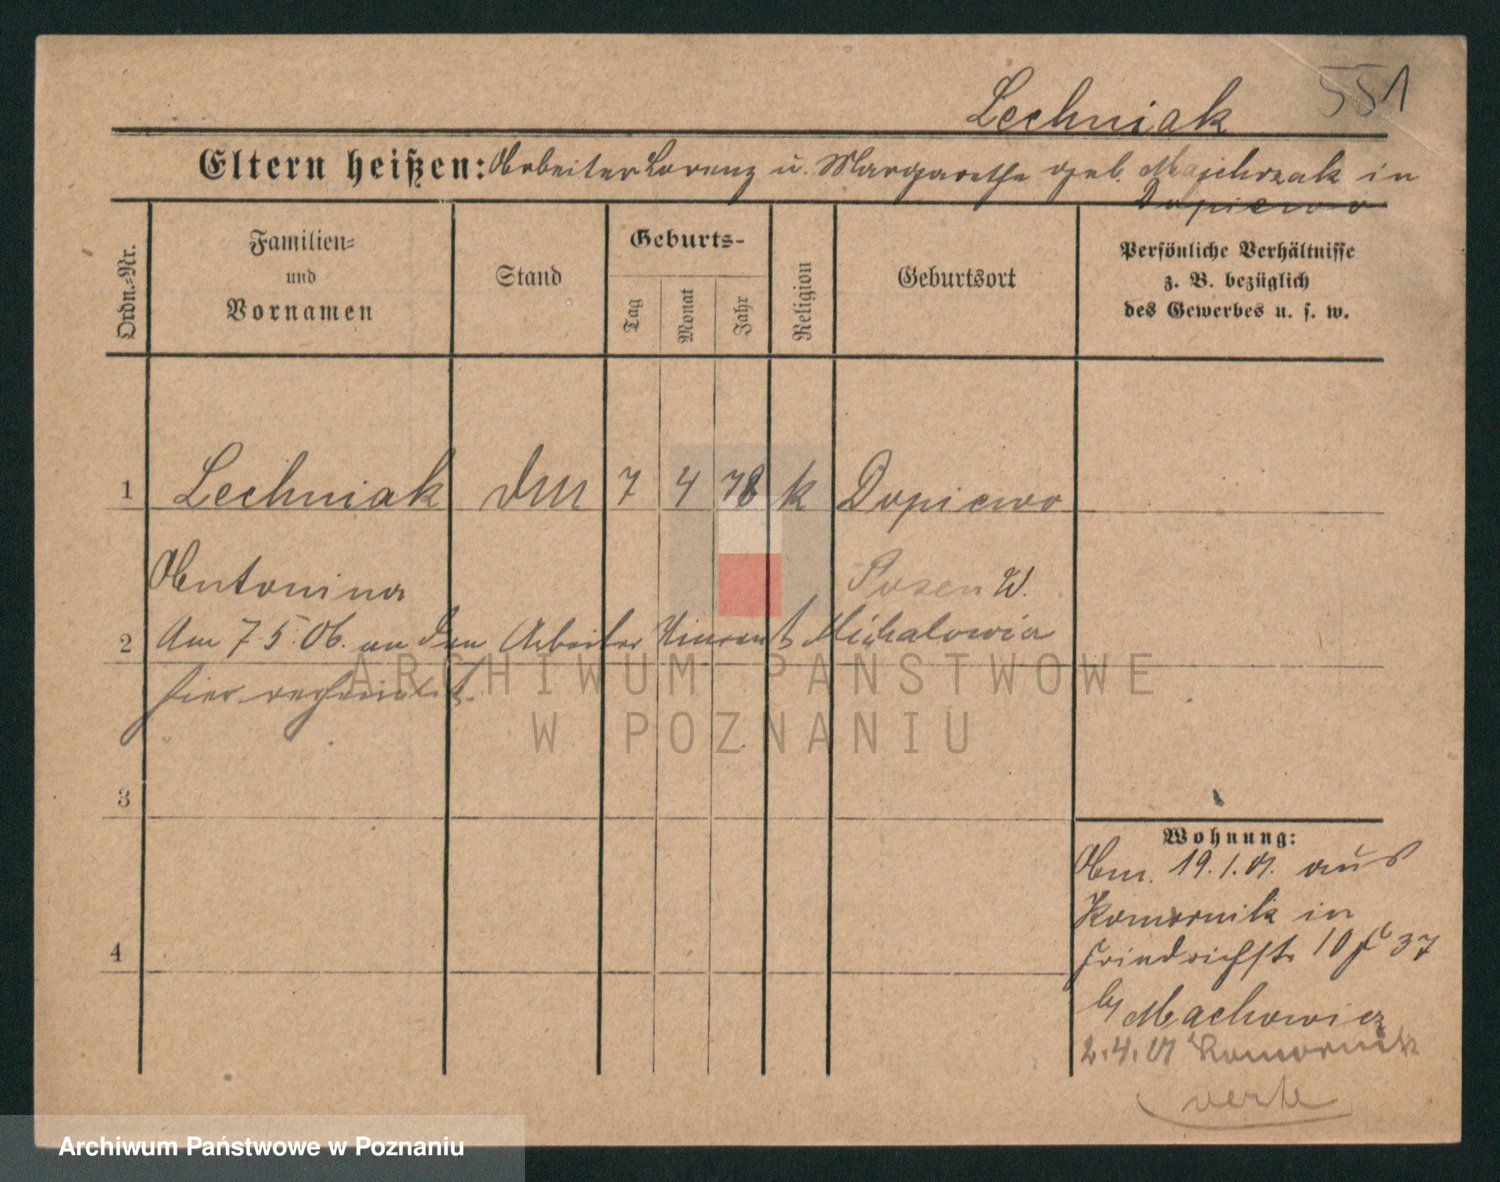 Lechniak 551
Eltern heißen: Arbeiter Lorenz u. Margarethe geb. Majchrzak in
Dopiewo
Ordn.-Nr.
Familien-
und
Vornamen
Stand
Geburts-
Tag
Monat
Jahr
Religion
Geburtsort
Persönliche Verhältnisse
z. B. bezüglich
des Gewerbes u. s. w.
1 Lechniak 7 4 78 k Dopiewo
Antonina Posen W.
2 Am 7.5.06. an den Arbeiter Vincent Michalowicz
hier verheiratet.
ARCHIWUM PAŃSTWOWE
W POZNANIU
3
Wohnung:
Am. 19.1.01. aus
Komornik in
4 Friedrichstr. 10 37
by Machowicz
2.4.01 Komornik
verte
Archiwum Państwowe w Poznaniu